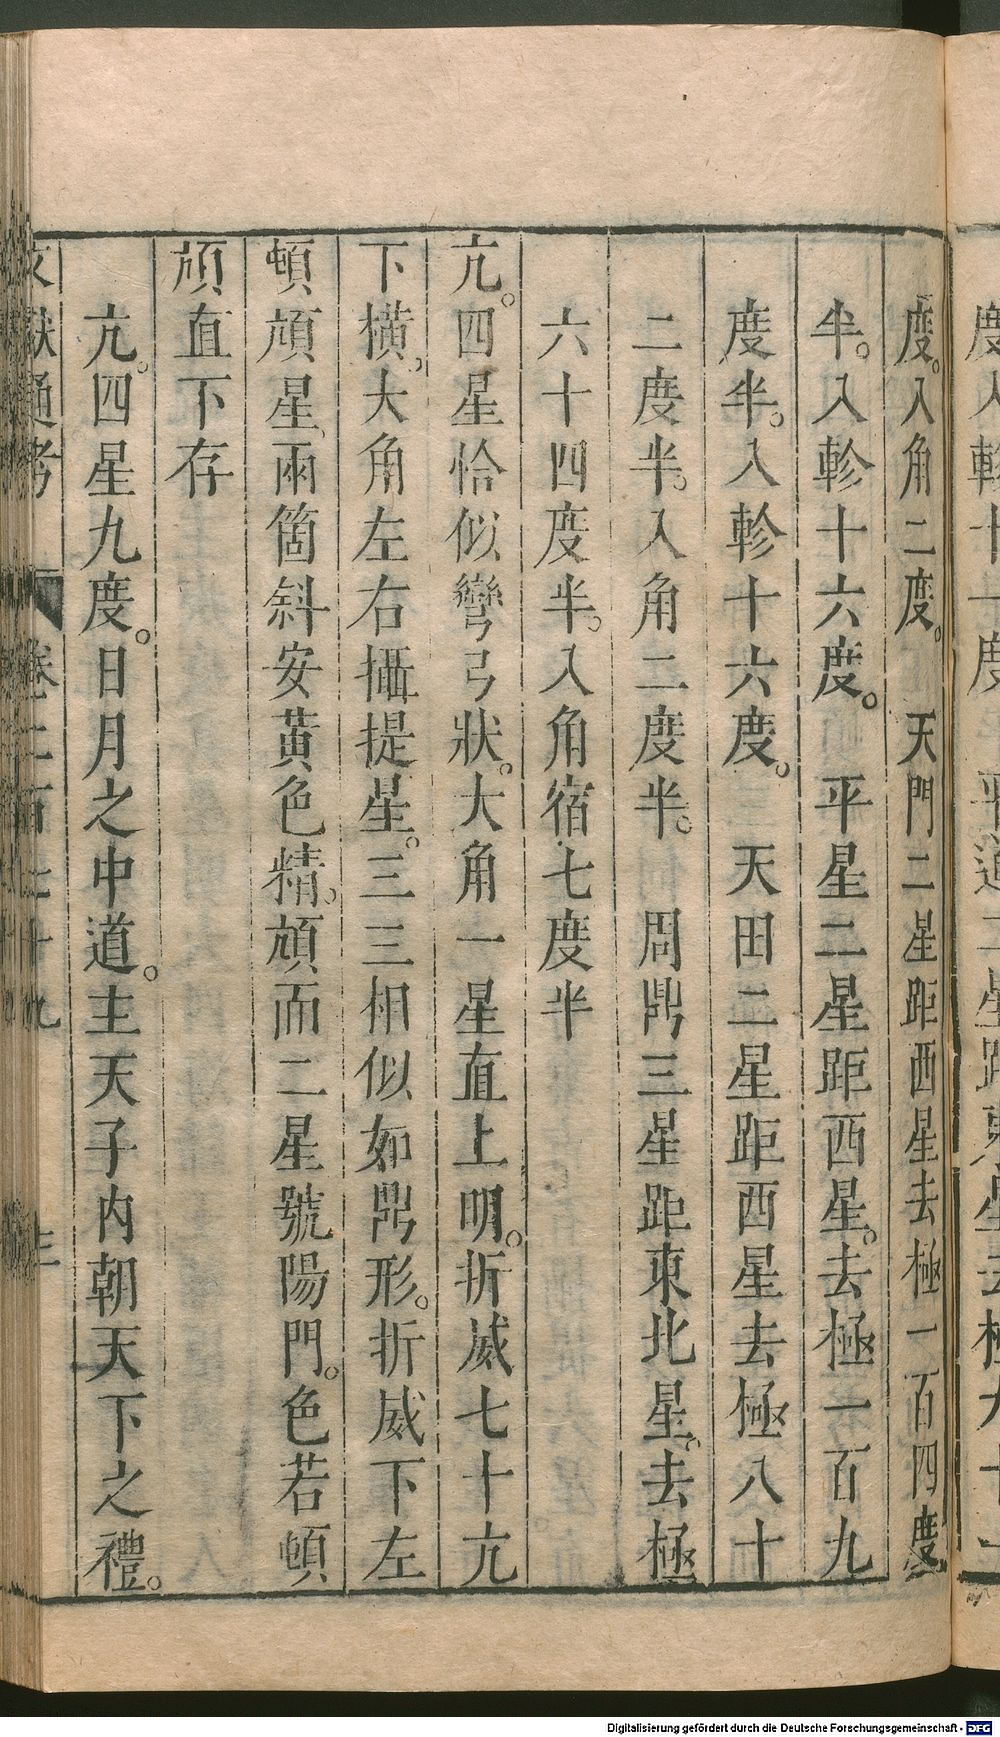 度。入角二度。　天門二星距西星去極一百四度
半。入軫十六度。　平星二星距西星。去極一百九
度半。入軫十六度。　天田二星距西星去極八十
二度半。入角二度半。　周鼎三星距東北星。去極
六十四度半。入角宿七度半
亢。四星恰似彎弓狀。大角一星直上明。折威七十亢
下橫。大角左右攝提星。三三相似如鼎形。折威下左
頓頑星。兩箇斜安黃色精。頑而二星號陽門。色若頓
頑直下存
亢。四星九度。日月之中道。主天子內朝天下之禮。
文獻通考　卷二百七十九
Digitalisierung gefördert durch die Deutsche Forschungsgemeinschaft - DFG